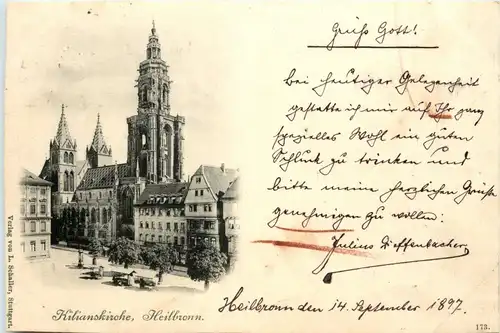 Grüß Gott!
bei heutiger Gelegenheit
gestatte ich mir auf Ihr ganz
spezielles Wohl ein guten
Schluck zu trinken und
bitte meine herzlichen Grüße
genehmigen zu wollen.
Julius Dieffenbacher
Heilbronn den 14. September 1897.
Kilianskirche, Heilbronn.
Verlag von L. Schaller, Stuttgart.
173.